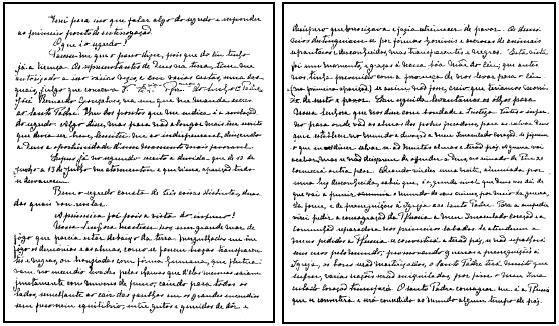 Terei para isso que falar algo do segredo e responder
ao primeiro ponto de interrogação.
O que é o segredo?
Parece-me que o posso dizer, pois que do Ceu tenho
já a licença. Os representantes de Deus na terra, teem-me
autorizado a isso varias vezes, e em varias cartas, uma das
quais, julgo que conserva V. Ex.cia Rev.ma do Senhor Padre
José Bernardo Gonçalves, na em que me manda escrever
ao Santo Padre. Um dos pontos que me indica é a revelação
do segredo. Algo disse, mas para não alongar mais esse escrito
que devia ser breve, limitei-me ao indispensavel, deixando
a Deus a oportunidade d'um momento mais favoravel.
Expus já no segundo escrito a duvida que de 13 de
junho a 13 de julho me atormentou e que n'essa aparição tudo
se desvaneceu.
Bem o segredo consta de três coisas distintas, duas
das quais vou revelar.
A primeira foi pois a vista do inferno!
Nossa Senhora mostrou-nos um grande mar de
fôgo que parcia estar debaixo da terra. Mergulhados em êsse
fôgo os demonios e as almas, como se fossem brasas transparen-
tes e negras, ou bronziadas com forma humana, que flutua-
vam no incendio levadas pelas chamas que d'elas mesmas saiam
juntamente com nuvens de fumo, caindo para todos os
lados, semelhante ao cair das faulhas em os grandes incendios
sem peso nem equilibrio, entre gritos e gemidos de dôr e
desespero que horrorizava e fazia estremecer de pavor. Os demo-
nios destinguiam-se por formas horriveis e ascrosas de animais
espantosos e desconhecidos, mas transparentes e negros. Esta vista
foi um momento, e graças à nossa bôa Mãe do Céu; que antes
nos tinha prevenido com a promeça de nos levar para o Céu
(na primeira aparição) se assim não fosse, creio que teriamos morri-
do de susto e pavor. Em seguida, levantámos os olhos para
Nossa Senhora que nos disse com bondade e tristeza: Vistes o infer-
no, para onde vão as almas dos pobres pecadores, para as salvar, Deus
quer establecer no mundo a devoção a meu Imaculado Coração. Se fizerem
o que eu vos disser salvar-se-ão muitas almas e terão paz. A guerra vai
acabar, mas se não deixarem de ofender a Deus, no reinado de Pio XI
começará outra peor. Quando virdes uma noite, alumiada por
uma luz desconhecida, sabei que é o grande sinal que Deus vos dá de
que vai a punir o mundo de seus crimes, por meio da guerra,
da fome e de perseguições à Igreja e ao Santo Padre. Para a impedir
virei pedir a consagração da Russia a meu Imaculado Coração e a
comunhão reparadora nos primeiros sabados. Se atenderem a
meus pedidos a Russia se converterá e terão paz, se não espalhará
seus erros pelo mundo, promovendo guerras e perseguições à
Igreja, os bons serão martirizados, o Santo Padre terá muito que
sofrer, varias nações serão aniquiladas, por fim o meu Ima-
culado Coração triunfará. O Santo Padre consagrar-me-á a Russia
que se converterá e será concedido ao mundo algum tempo de paz.